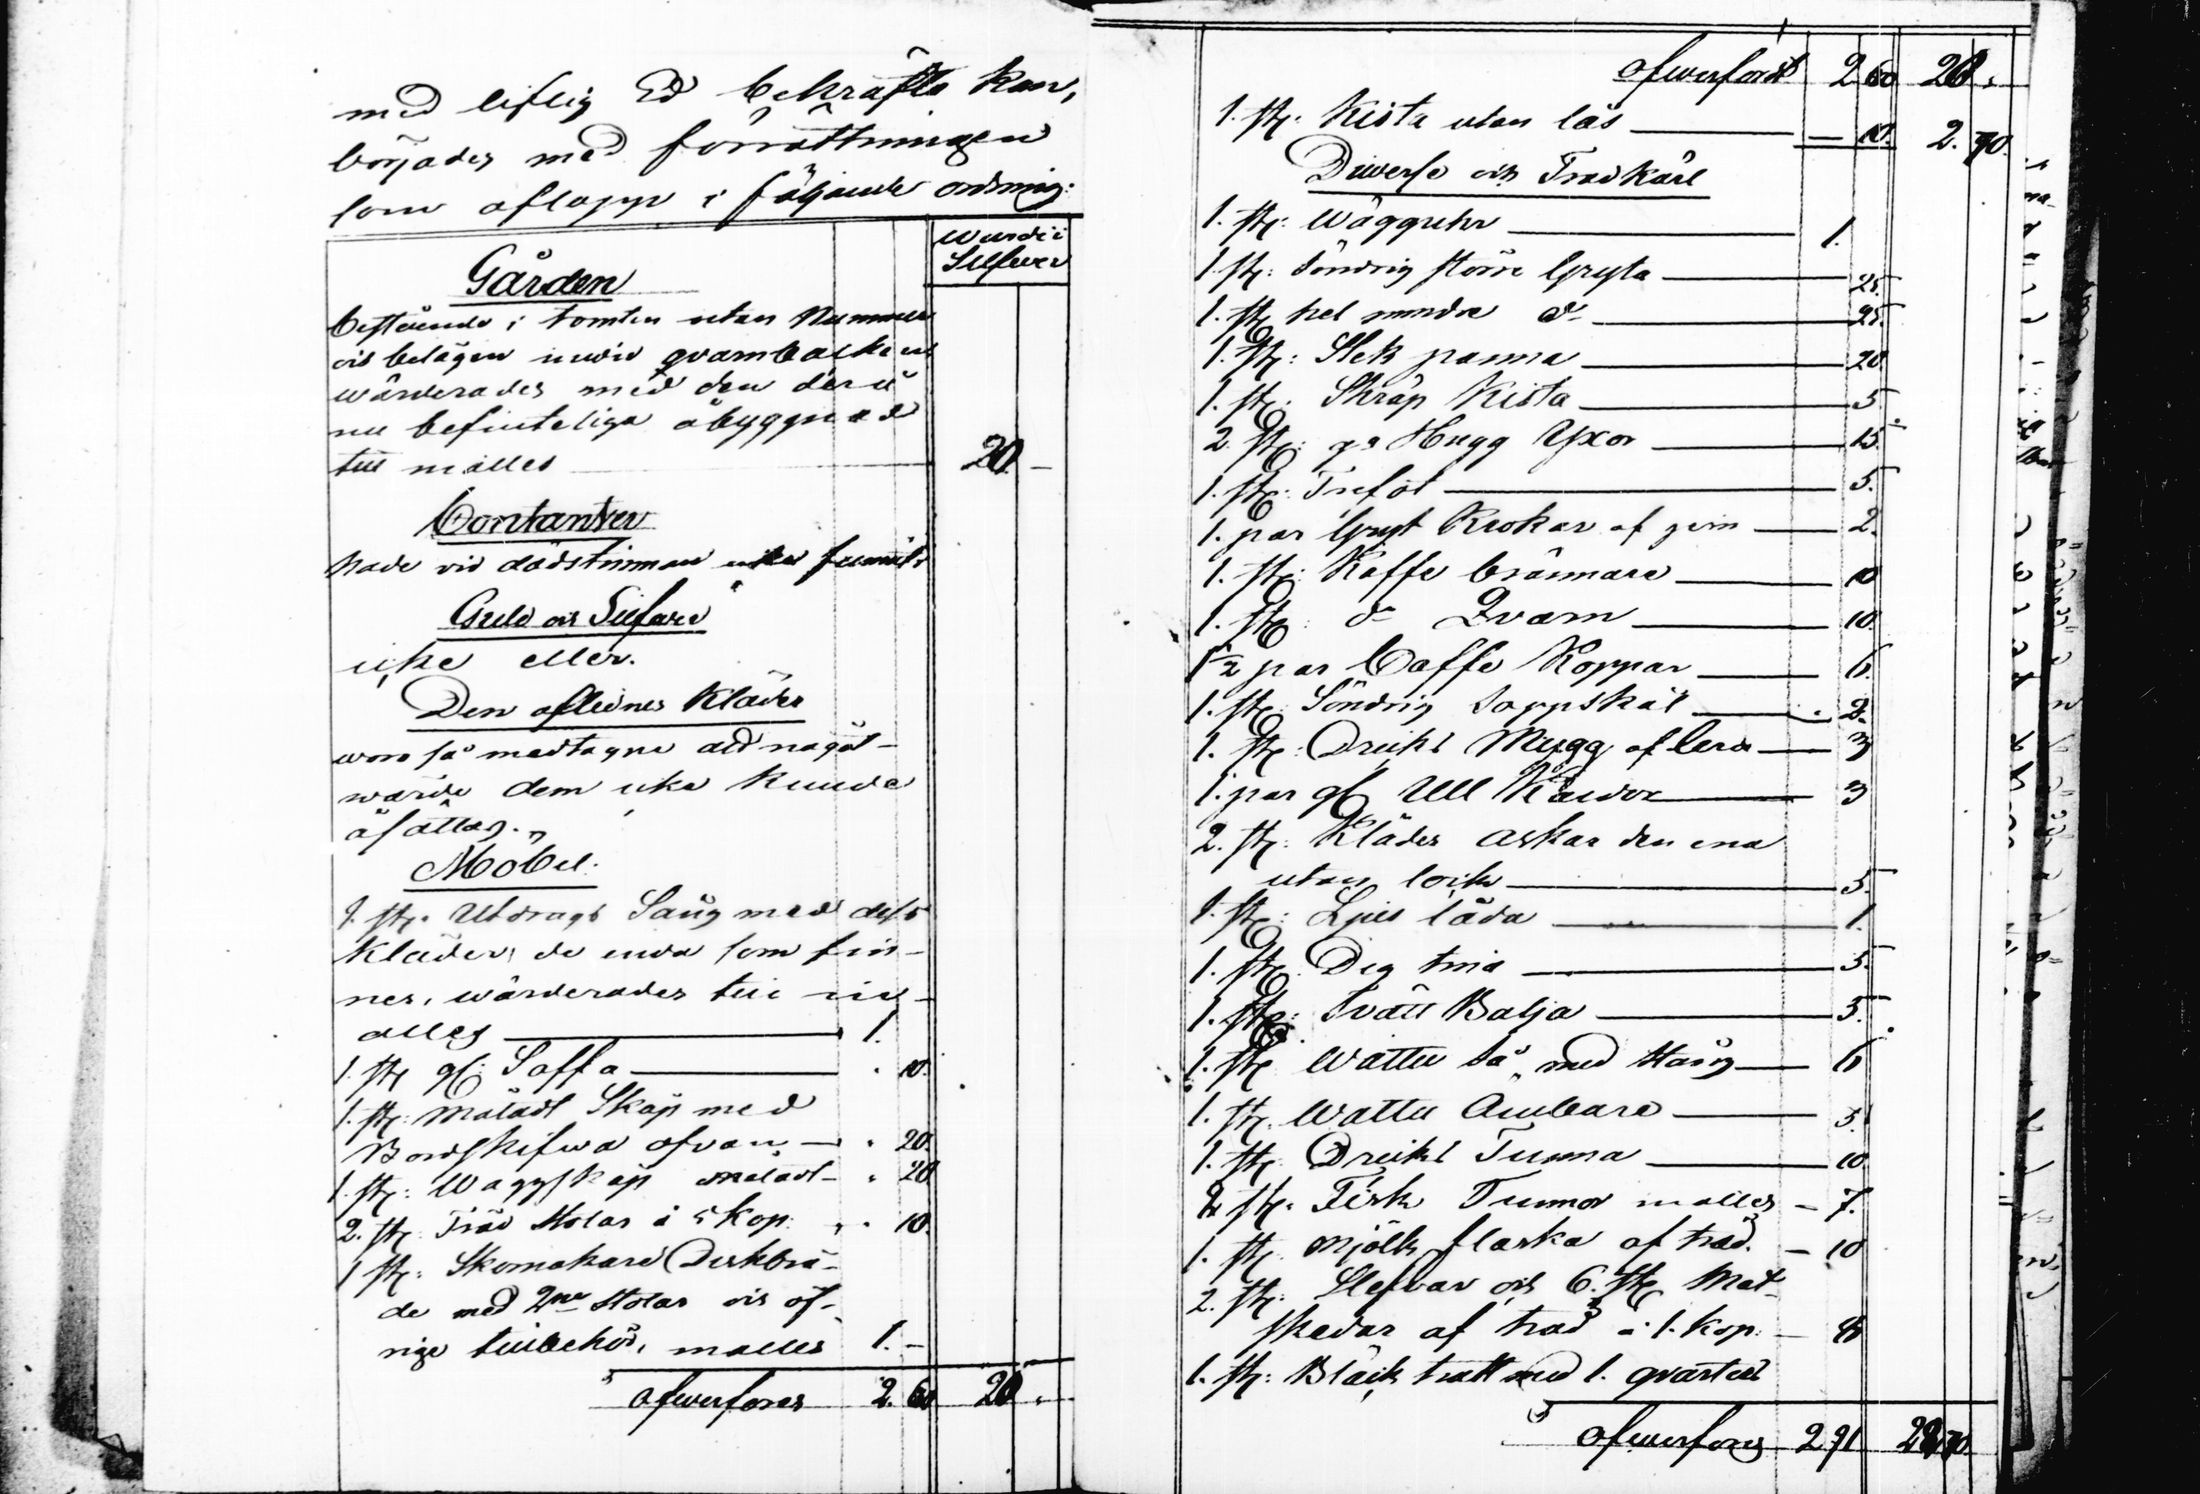 med liflig Ed bekräfta kan,
börjades med förrättningen
som aflopp i följande ordning:
Värde i
Silfver
Gården
bestående i tomten utan Nummer
och belägen inwid qvarnbacken
wärderades med den derå
nu befinteliga åbyggnad
till in alles 20. —
Contanter
hade vid dödstimman icke funnits
Guld och Silfver
icke eller.
Den aflednes Kläder
woro så medtagne att något
wärde dem icke kunde
åsättas.
Möbel.
1. st. Utdrags Säng med dess
Kläder, de enda som fin-
nes, wärderades till in
alles 1.
1. st. gl. Soffa 10.
1. st. måladt Skåp med
Bordskifwa ofvan 20.
1. st. Wäggskåp omåladt 20
2. st. Träd Stolar à 5 Kop. 10.
1 st. Skomakare Diskbrä-
de med 2ne Stolar och öf-
rige tillbehör, in alles 1. —
Öfwerföres 2. 60 20 .
Öfwerfördt 2 60 20 .
1. st. Kista utan lås — 10. 2. 70.
Diverse och Trädkärl
1. st. Wäggur 1.
1. st. Söndrig större Gryta 25.
1. st. hel mindre do 25.
1. st. Stek panna 20.
1. st. Skräp Kista 5.
2. st. ga Hugg Yxor 15.
1. st. Trefot 5.
1. par Gryt Krokar af jern 2.
1. st. Kaffe brännare 10
1. st. do Qvarn 10.
1 1/2 par Caffe Koppar 6.
1. st. Söndrig Soppskål 2.
1. st. Dricks Mugg af lera 3
1. par gl. Ull Kardor 3
2. st. Kläder askar den ena
utan lock 5.
1. st. Ljus låda 1.
1. st. Deg trå 5.
1. st. Tvätt Balja 5.
1. st. Wattu så med Stång 6
1. st. Wattu Ämbare 5.
1. st. Dricks Tunna 10.
st. Fisk Tunnor in alles — 7.
1. st. Mjölk flaska af träd. — 10
2. st. Slefvar och 6. st. Mat-
skedar af träd à 1. Kop. — 8
1. st. Bläck tratt med 1. qvarter
Öfwerföres 2 91 22 70.